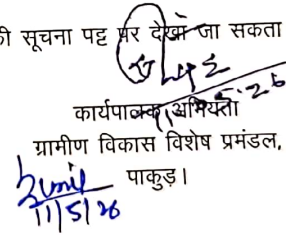 की सूचना पट्ट पर देखा जा सकता
कार्यपालक अभियंता
ग्रामीण विकास विशेष प्रमंडल,
पाकुड़।
11/5/26